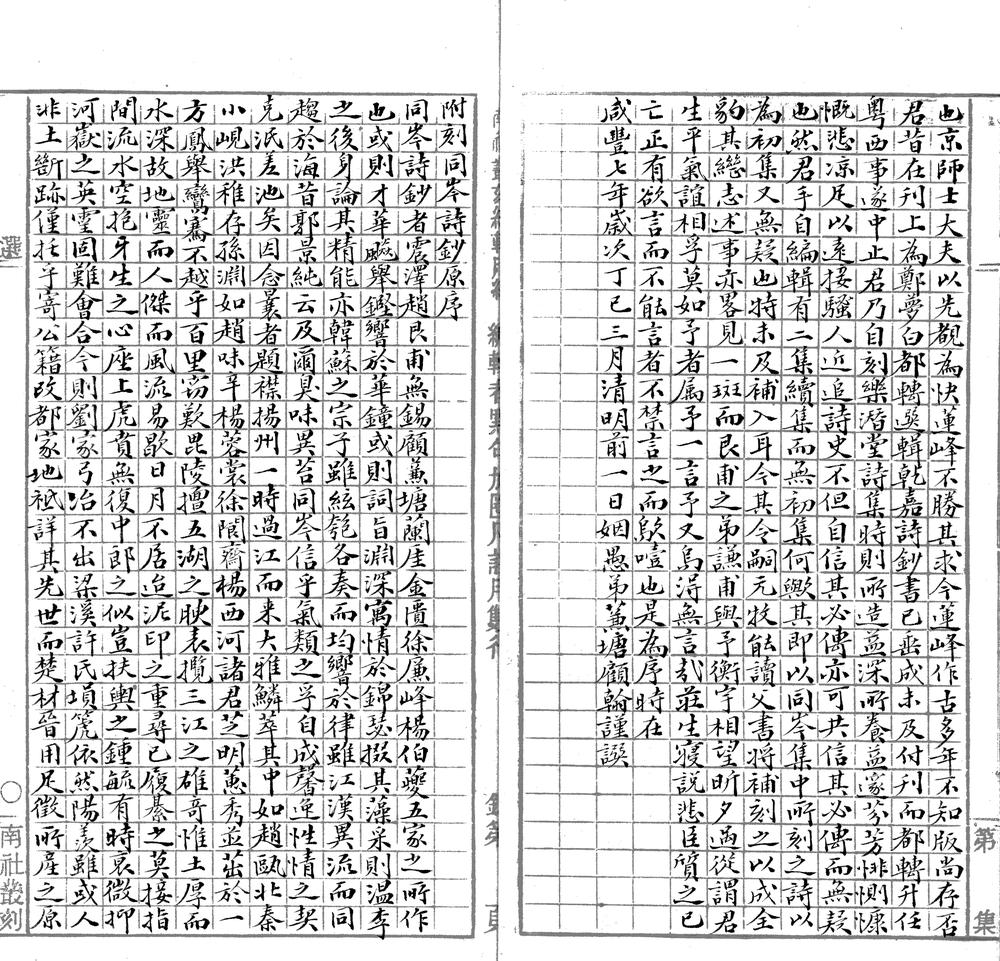 也京師士大夫以先覩為快蓮峰不勝其求今蓮峰作古多年不知版尚存否
君昔在刊上為鄭夢白都轉選輯乾嘉詩鈔書已垂成未及付刊而都轉升任
粵西事遂中止君乃自刻樂潛堂詩集時則所造益深所養益邃芬芳悱惻慷
慨悲凉足以遠接騷人近追詩史不但自信其必傳亦可共信其必傳而無疑
也然君手自編輯有二集續集而無初集何歟其即以同岑集中所刻之詩以
為初集又無疑也特未及補入耳今其令嗣元牧能讀父書將補刻之以成全
豹其繼志述事亦畧見一斑而艮甫之弟謙甫與予衡宇相望昕夕過從謂君
生平氣誼相孚莫如予者属予一言予又烏得無言哉莊生寢說悲臣質之已
亡正有欲言而不能言者不禁言之而歔嘻也是為序時在
咸豐七年歲次丁巳三月清明前一日姻愚弟蒹塘顧翰謹譔
附刻同岑詩鈔原序
同岑詩鈔者震澤趙艮甫無錫顧蒹塘蘭厓金匱徐廉峰楊伯夔五家之所作
也或則才華飈舉鏗響於華鐘或則詞旨淵深寓情於錦瑟掇其藻采則温季
之後身論其精能亦韓蘇之宗子雖絃匏各奏而均響於律雖江漢異流而同
趨於海昔郭景純云及爾臭味異苔同岑信乎氣類之孚自成馨逸性情之契
克泯差池矣因念曩者題襟揚州一時過江而来大雅鱗萃其中如趙甌北秦
小峴洪稚存孫淵如趙味辛楊蓉裳徐閬齋楊西河諸君芝明蕙秀並茁於一
方鳳舉鸞騫不越乎百里窃歎毘陵擅五湖之映表攬三江之雄奇惟土厚而
水深故地靈而人傑而風流易歇日月不居迨泥印之重尋已履綦之莫接指
間流水空抱牙生之心座上虎賁無復中郎之似豈扶輿之鍾毓有時衰微抑
河嶽之英靈固難會合今則劉家弓冶不出梁溪許氏塤箎依然陽羨雖或人
非土斷跡僅托乎寄公籍改都家地祗詳其先世而楚材晉用足徵所產之原
第
集
選
○南社叢刻